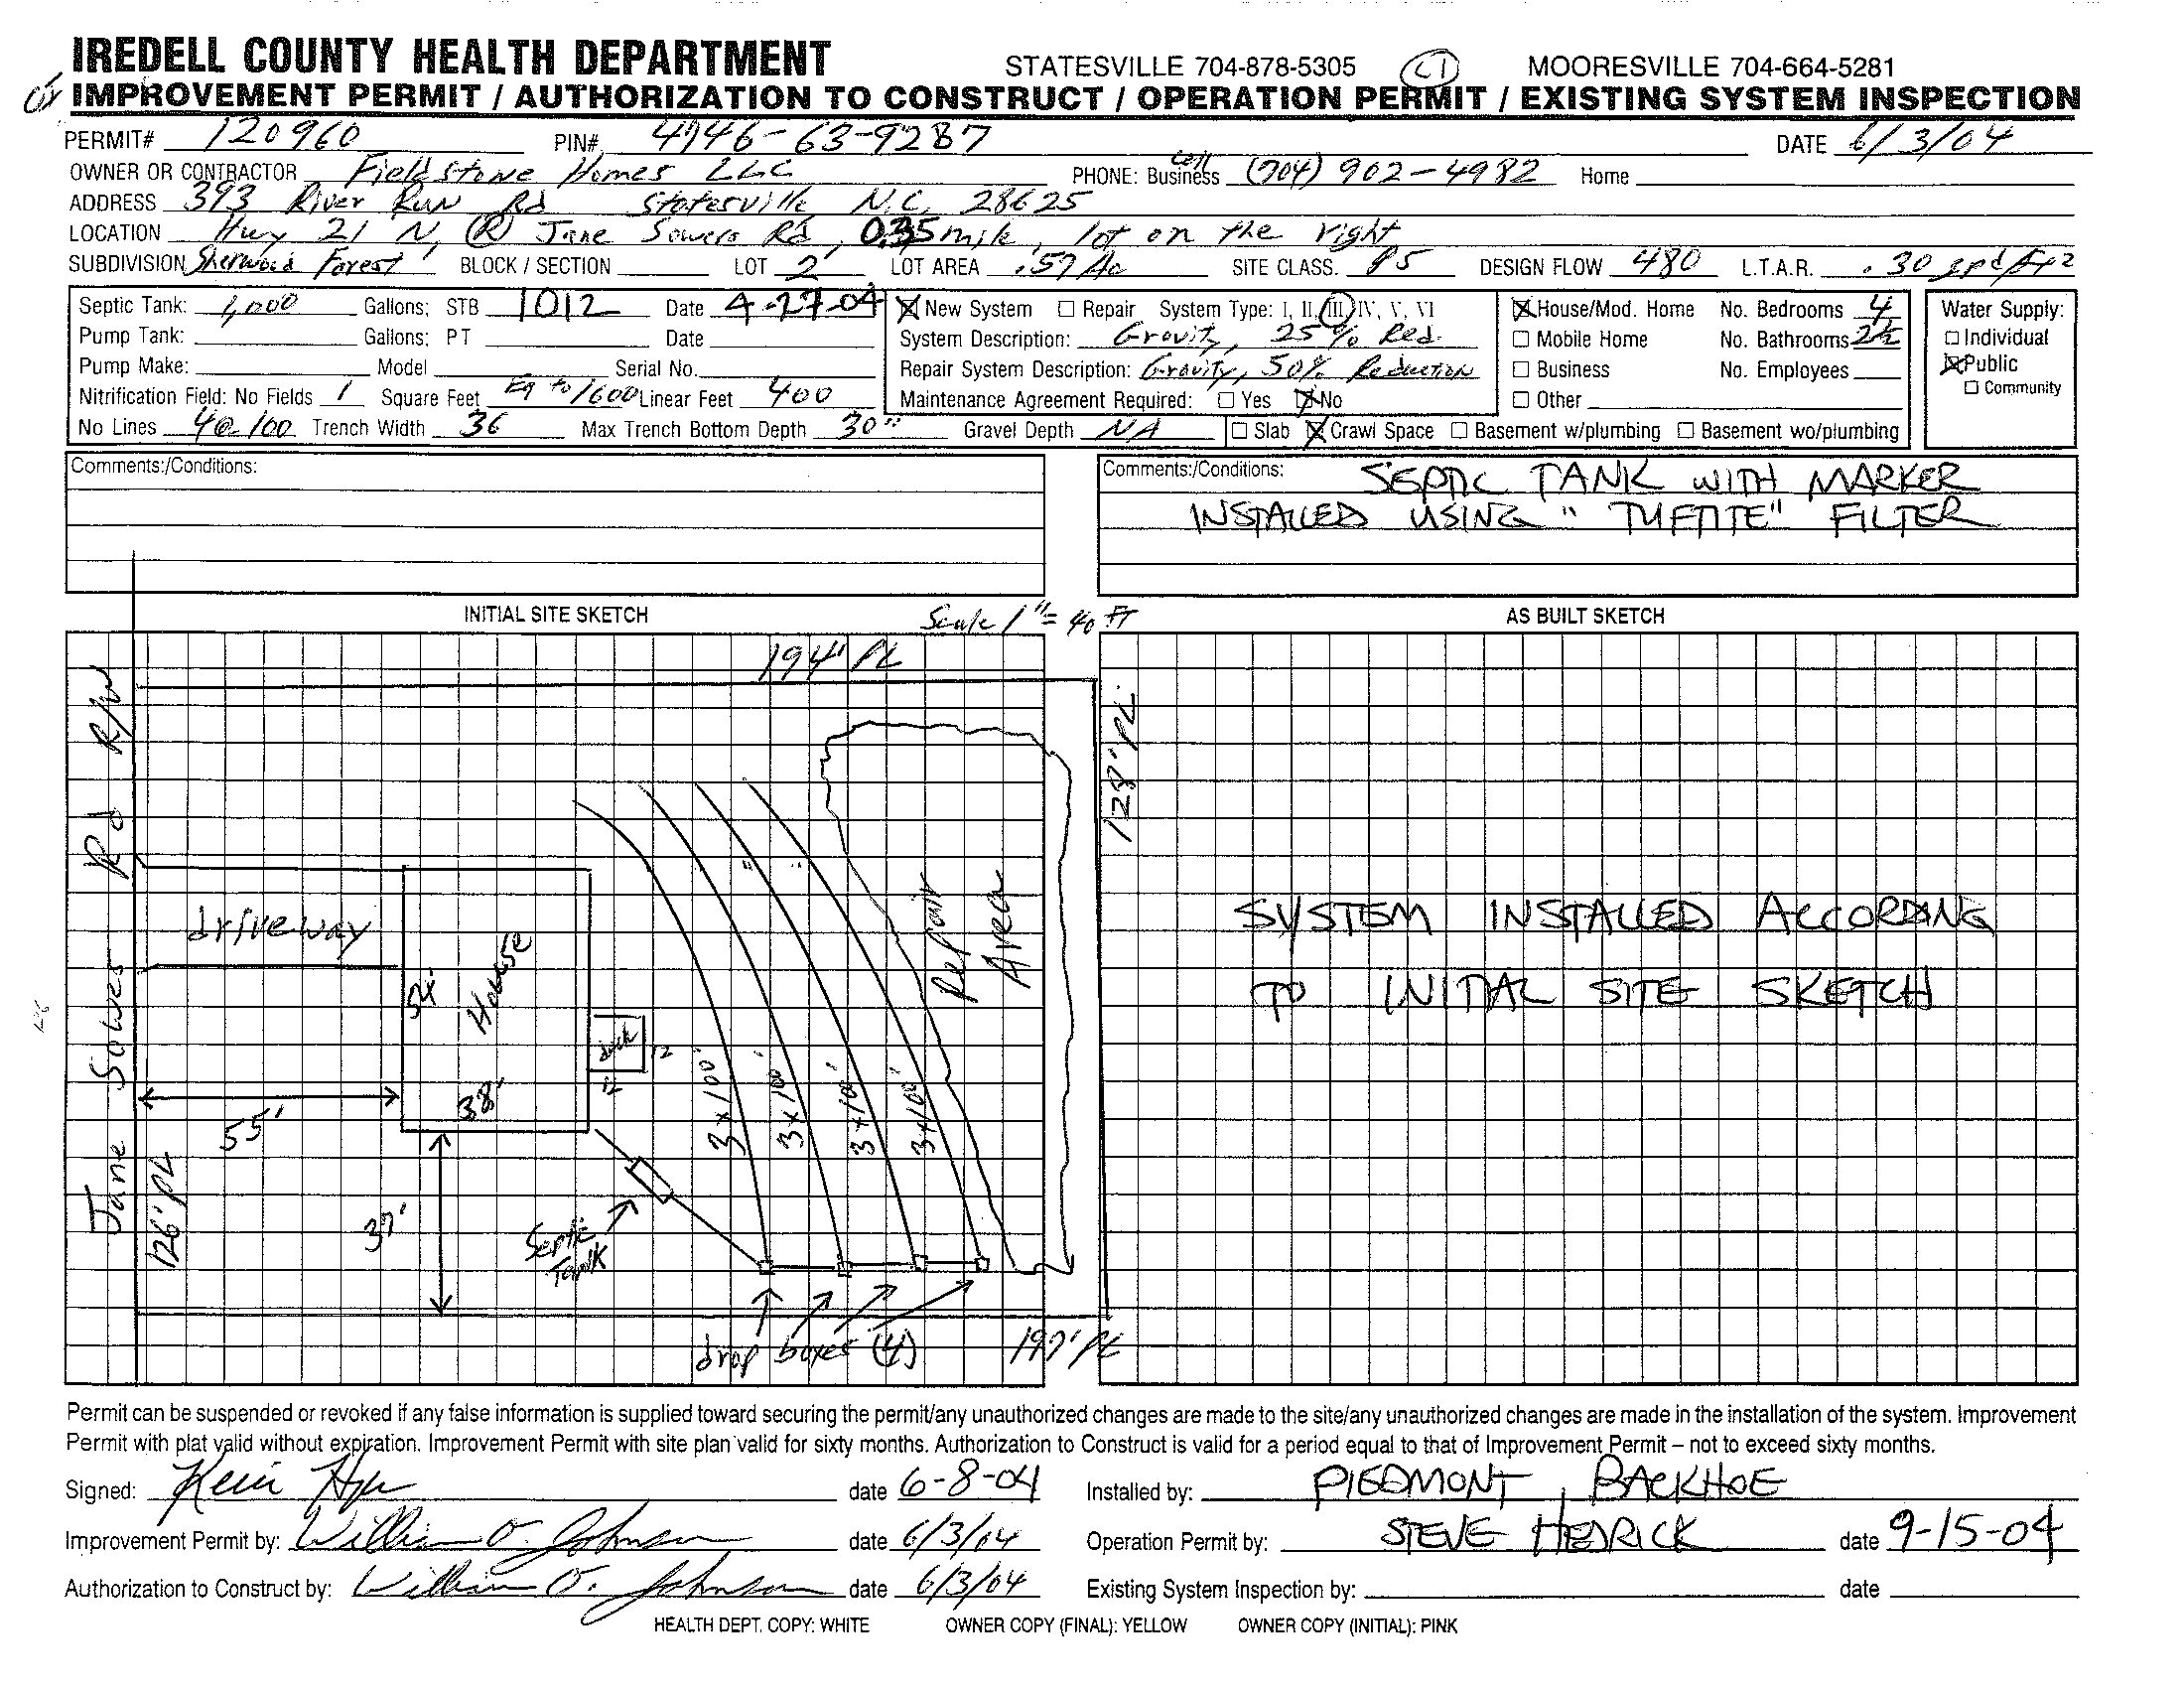 IREDELL COUNTY HEALTH DEPARTMENT STATESVILLE 704-878-5305 MOORESVILLE 704-664-5281
IMPROVEMENT PERMIT / AUTHORIZATION TO CONSTRUCT / OPERATION PERMIT / EXISTING SYSTEM INSPECTION
PERMIT# 120960 PIN# 4746-63-9287 DATE 6/3/04
OWNER OR CONTRACTOR Fieldstone Homes LLC PHONE: Business Cell (704) 902-4982 Home
ADDRESS 393 River Run Rd Statesville N.C. 28625
LOCATION Hwy 21 N, (R) Jane Sowers Rd, 0.35 mile, lot on the right
SUBDIVISION Sherwood Forest BLOCK / SECTION LOT 2 LOT AREA .57 Ac SITE CLASS. PS DESIGN FLOW 480 L.T.A.R. .30 gpd/ft2
Septic Tank: 1,000 Gallons; STB 1012 Date 4-27-04 New System Repair System Type: I, II, III, IV, V, VI House/Mod. Home No. Bedrooms 4 Water Supply:
Pump Tank: Gallons; PT Date System Description: Gravity, 25% Red. Mobile Home No. Bathrooms 2½ Individual
Pump Make: Model Serial No. Repair System Description: Gravity, 50% Reduction Business No. Employees Public
Nitrification Field: No Fields 1 Square Feet Eq to 1600 Linear Feet 400 Maintenance Agreement Required: Yes No Other Community
No Lines 4@100 Trench Width 36 Max Trench Bottom Depth 30" Gravel Depth NA Slab Crawl Space Basement w/plumbing Basement wo/plumbing
Comments:/Conditions:
Comments:/Conditions: SEPTIC TANK WITH MARKER
INSTALLED USING "TUFTITE" FILTER
INITIAL SITE SKETCH Scale 1"= 40 FT
AS BUILT SKETCH
194' PL
128' PL
Jane Sowers Rd R/W
driveway
House
54'
38'
deck
12
12
55'
37'
126' PL
Septic Tank
3x100'
3x100'
3x100'
3x100'
Repair Area
drop boxes (4)
197' PL
SYSTEM INSTALLED ACCORDING
TO INITIAL SITE SKETCH
Permit can be suspended or revoked if any false information is supplied toward securing the permit/any unauthorized changes are made to the site/any unauthorized changes are made in the installation of the system. Improvement
Permit with plat valid without expiration. Improvement Permit with site plan valid for sixty months. Authorization to Construct is valid for a period equal to that of Improvement Permit – not to exceed sixty months.
Signed: date 6-8-04 Installed by: PIEDMONT BACKHOE
Improvement Permit by: William O. Johnson date 6/3/04 Operation Permit by: STEVE HEDRICK date 9-15-04
Authorization to Construct by: William O. Johnson date 6/3/04 Existing System Inspection by: date
HEALTH DEPT. COPY: WHITE OWNER COPY (FINAL): YELLOW OWNER COPY (INITIAL): PINK